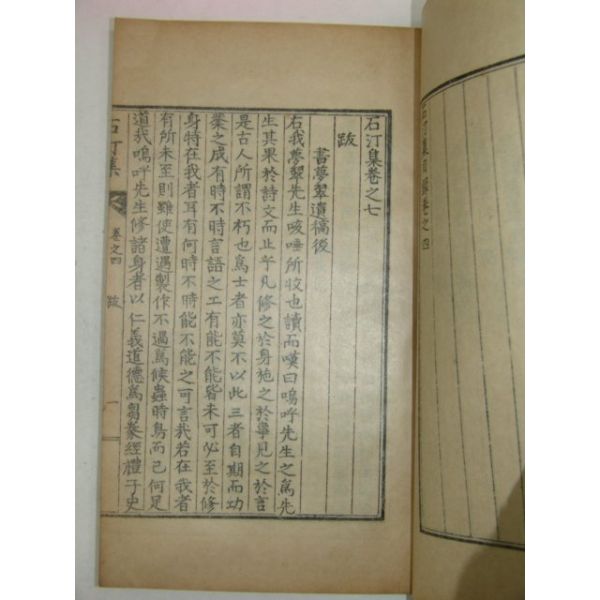 石汀集卷之七
跋
書夢翠遺稿後
右我夢翠先生咳唾所收也讀而嘆曰嗚呼先生之爲先
生其果於詩文而止乎凡修之於身施之於事見之於言
是古人所謂不朽也爲士者亦莫不以此三者自期而功
業之成有時不時言語之工有能不能皆未可必至於修
身特在我者耳有何時不時能不能之可言我若在我者
有所未至則雖使遭遇製作不過爲候蟲時鳥而已何足
道哉嗚呼先生修諸身者以仁義道德爲芻豢經禮子史
石汀集
卷之四
跋
一
石汀集目錄卷之四